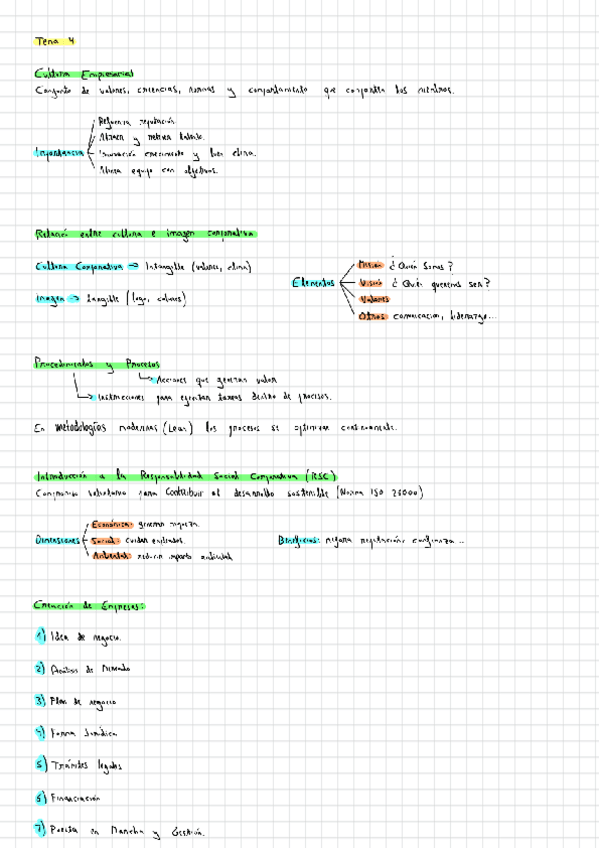 Tema 4
Cultura Empresarial
Conjunto de valores, creencias, normas y comportamiento que comparten los miembros.
Importancia
Refuerza reputación
Atraen y retiene talento.
Innovación crecimiento y buen clima.
Alinea equipo con objetivos.
Relación entre cultura e imagen corporativa
Cultura Corporativa → Intangible (valores, clima)
Imagen → tangible (logo, colores)
Elementos
Misión ¿Quién Somos?
Visión ¿Quién queremos ser?
Valores
Otros comunicación, liderazgo...
Procedimientos y Procesos
Acciones que generan valor
Instrucciones para ejecutar tareas dentro de procesos.
En metodologías modernas (Lean) los procesos se optimizan continuamente.
Introducción a la Responsabilidad Social Corporativa (RSC)
Compromiso voluntario para contribuir al desarrollo sostenible (Norma ISO 26000)
Dimensiones
Económica: generar riqueza.
Social: cuidar empleados.
Ambiental: reducir impacto ambiental
Beneficios: mejora reputación, confianza...
Creación de Empresas:
1) Idea de negocio.
2) Análisis de Mercado
3) Plan de negocio
4) Forma Jurídica
5) Trámites legales
6) Financiación
7) Puesta en Marcha y Gestión.